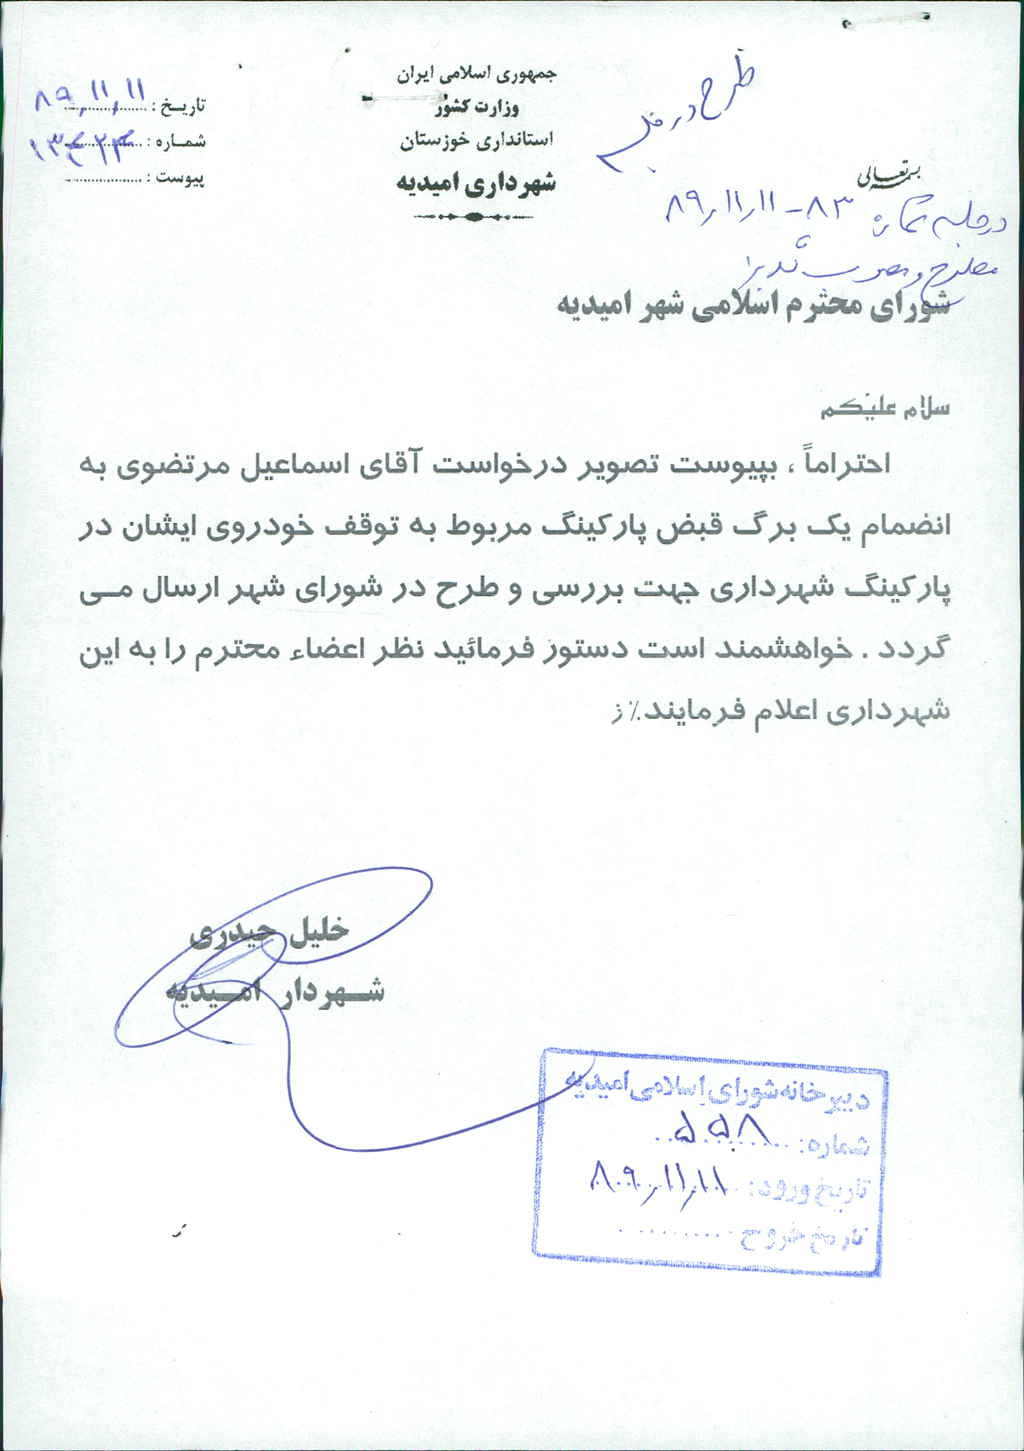 جمهوری اسلامی ایران
وزارت کشور
استانداری خوزستان
شهرداری امیدیه
تاریخ : ۸۹,۱۱,۱۱
شماره :
پیوست :
طرح در
بسمه تعالی
در جلسه شماره ۸۳ - ۸۹,۱۱,۱۱
مطرح و
شورای محترم اسلامی شهر امیدیه
سلام علیکم
احتراماً ، بپیوست تصویر درخواست آقای اسماعیل مرتضوی به
انضمام یک برگ قبض پارکینگ مربوط به توقف خودروی ایشان در
پارکینگ شهرداری جهت بررسی و طرح در شورای شهر ارسال می
گردد . خواهشمند است دستور فرمائید نظر اعضاء محترم را به این
شهرداری اعلام فرمایند٪ ز
خلیل حیدری
شهردار امیدیه
دبیرخانه شورای اسلامی امیدیه
شماره: ۵۵۸
تاریخ ورود: ۸۹,۱۱,۱۱
تاریخ خروج